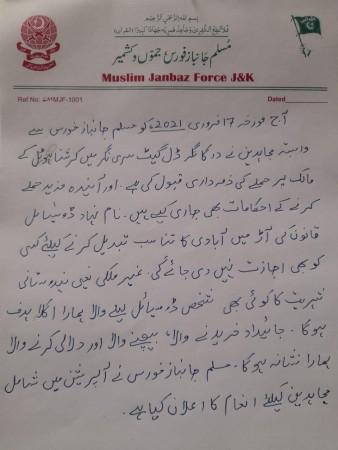 بسم اللہ الرحمٰن الرحیم
فَلَا تُطِعِ الْكٰفِرِيْنَ وَجَاهِدْهُمْ بِهٖ جِهَادًا كَبِيْرًا القرآن
مُسلم جانباز فورس جمّوں و کشمیر
Muslim Janbaz Force J&K
Ref No: MJF-1001 Dated
آج مورخہ 17 فروری 2021ء کو مسلم جانباز فورس سے
وابستہ مجاہدین نے درگاگر ڈل گیٹ سری نگر میں کرشنا ہوٹل کے
مالک پر حملے کی ذمہ داری قبول کی ہے۔ اور آئیندہ مزید حملے
کرنے کے احکامات بھی جاری کیے ہیں۔ نام نہاد ڈومیسائل
قانون کی آڑ میں آبادی کا تناسب تبدیل کرنے کیلئے کسی
کو بھی اجازت نہیں دی جائے گی۔ غیر ملکی یعنی ہندوستانی
شہریت کا کوئی بھی شخص ڈومیسائل لینے والا ہمارا اگلا ہدف
ہوگا۔ جائیداد خریدنے والا، بیچنے والا اور دلالی کرنے والا
ہمارا نشانہ ہوگا۔ مسلم جانباز فورس نے آپریشن میں شامل
مجاہدین کیلئے انعام کا اعلان کیا ہے۔